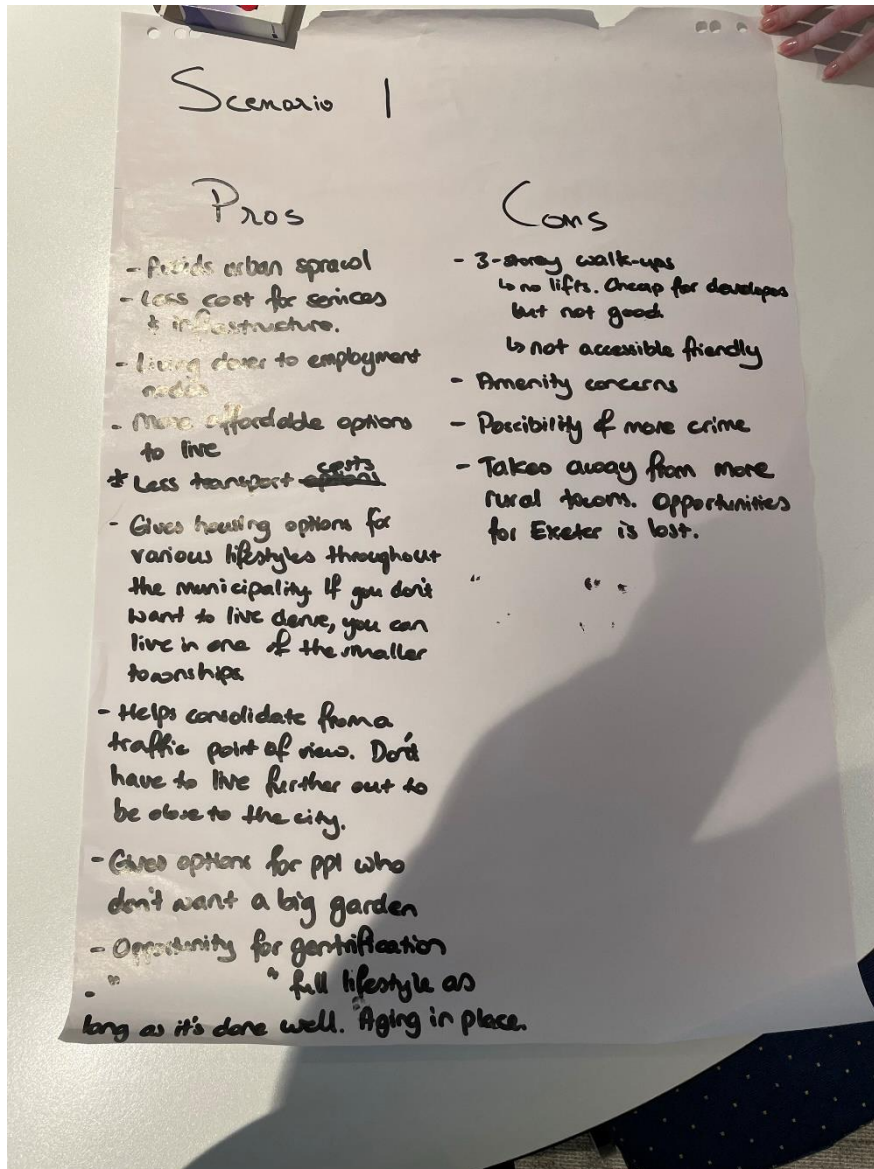 Scenario 1
Pros
- Avoids urban sprawl
- Less cost for services
& infrastructure.
- Living closer to employment
nodes
- More affordable options
to live
* Less transport costs
- Gives housing options for
various lifestyles throughout
the municipality. If you don't
want to live dense, you can
live in one of the smaller
townships.
- Helps consolidate from a
traffic point of view. Don't
have to live further out to
be close to the city.
- Gives options for ppl who
don't want a big garden
- Opportunity for gentrification
- " " full lifestyle as
long as it's done well. Aging in place.
Cons
- 3-storey walk-ups
↳ no lifts. Cheap for developers
but not good
↳ not accessible friendly
- Amenity concerns
- Possibility of more crime
- Takes away from more
rural towns. Opportunities
for Exeter is lost.